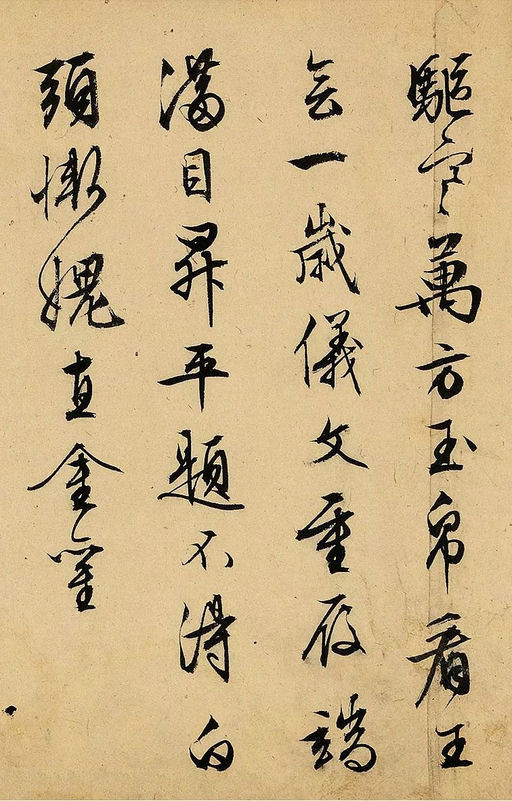 驅寒萬方玉帛看王
會一歲儀文重履端
滿目昇平題不得白
頭慚媿直金鑾